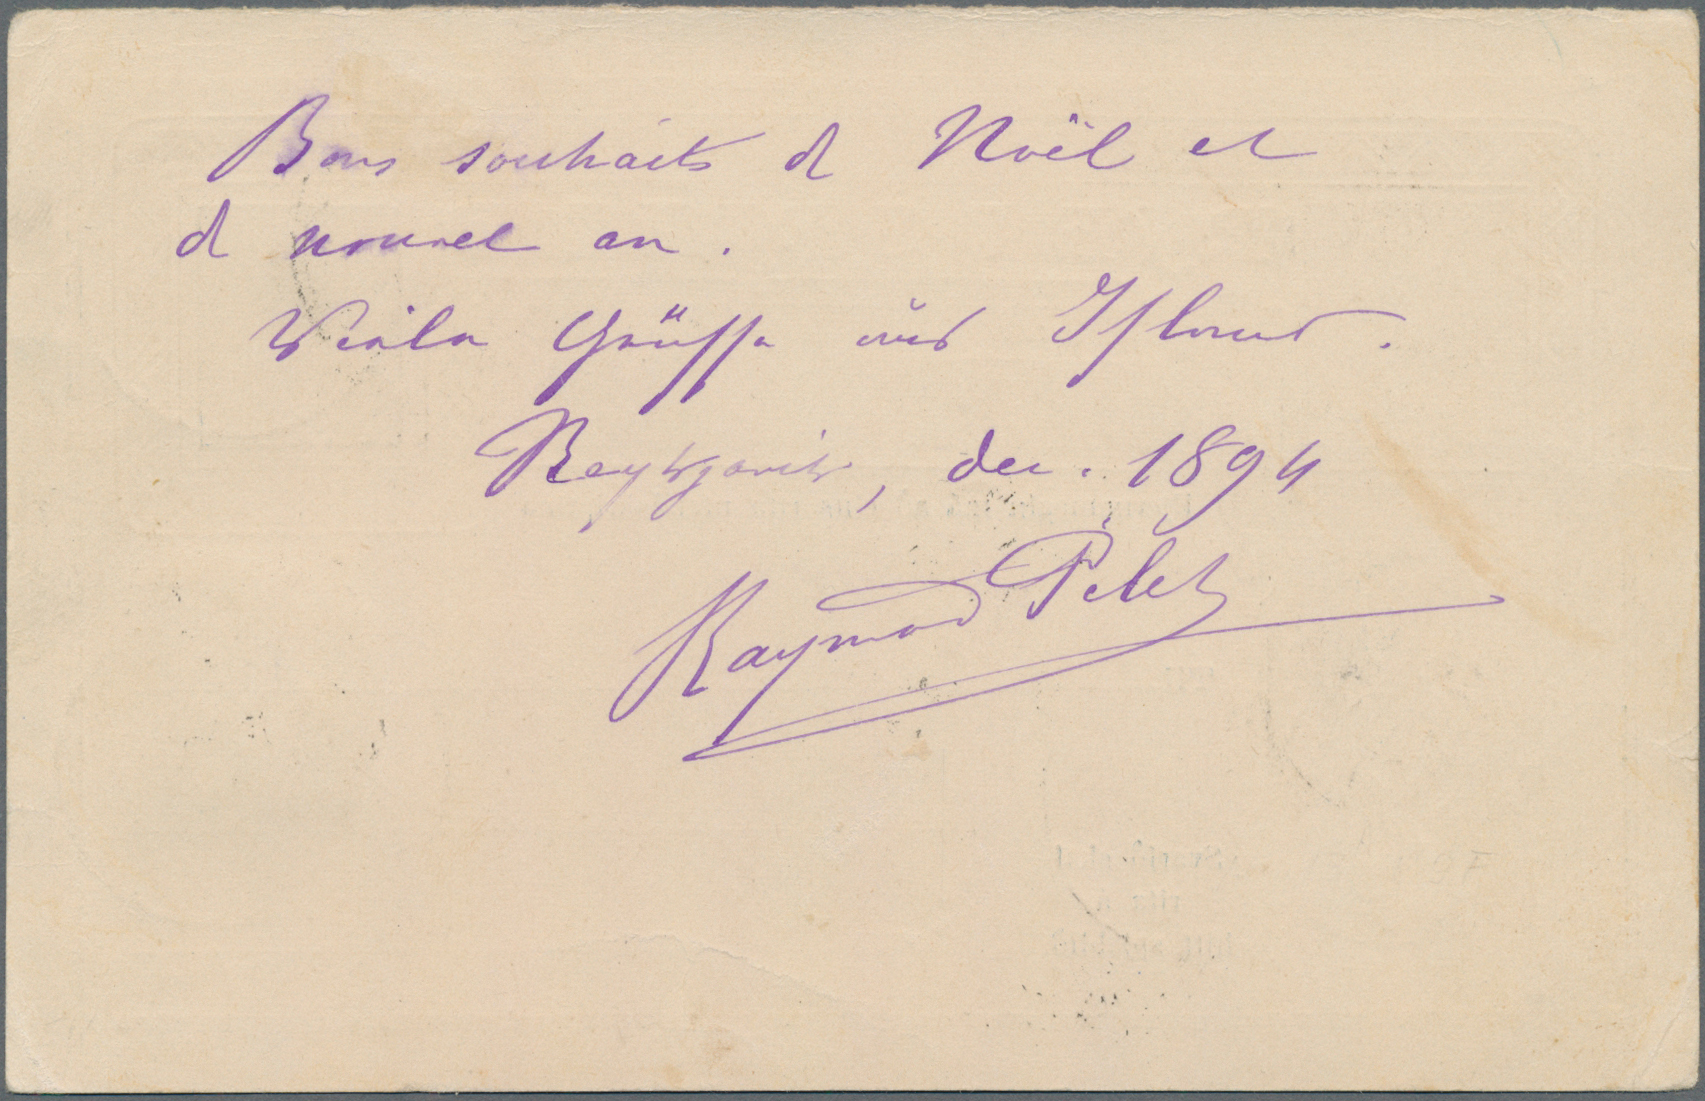 Bons souhaits d Noël et
d nouvel an.
Viele Grüsse aus Island.
Reykjavik, dec. 1894
Raymond Pilet